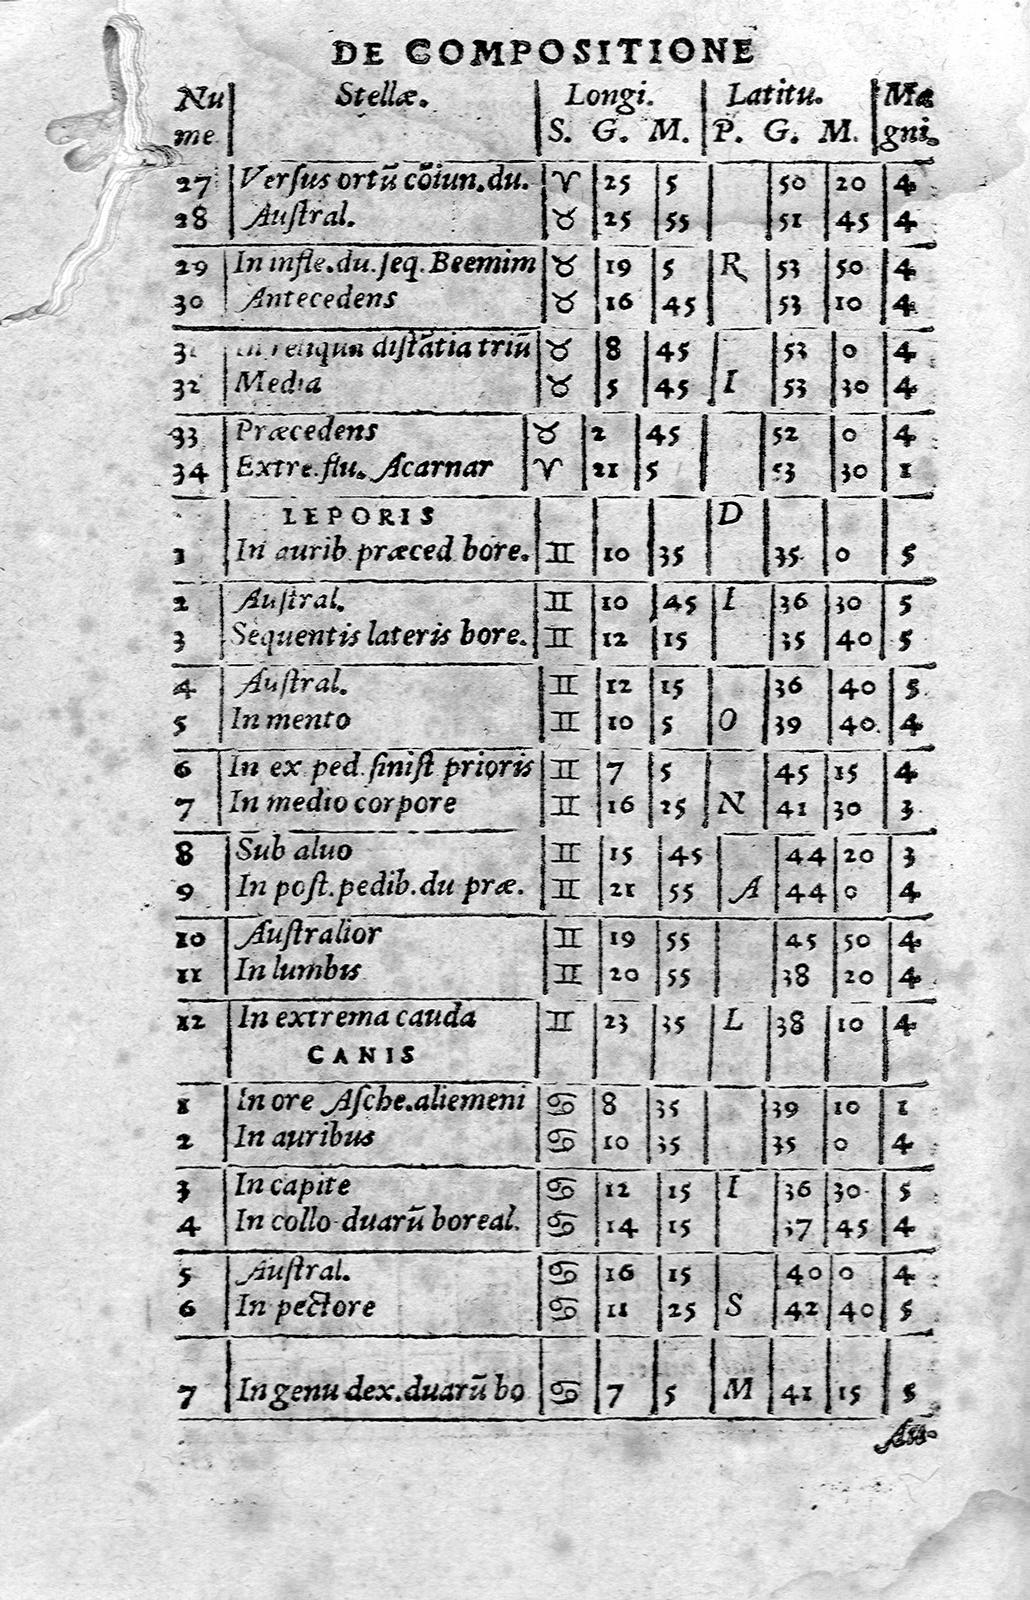 DE COMPOSITIONE
Nu Stellæ. Longi. Latitu. Ma
me. S. G. M. P. G. M. gni.
27 Verſus ortũ cõiun.du. ♈ 25 5 50 20 4
28 Auſtral. ♉ 25 55 51 45 4
29 In infle.du.ſeq. Beemim ♉ 19 5 R 53 50 4
30 Antecedens ♉ 16 45 53 10 4
31 In reliqua diſtãtia triũ ♉ 8 45 53 0 4
32 Media ♉ 5 45 I 53 30 4
33 Præcedens ♉ 2 45 52 0 4
34 Extre.flu. Acarnar ♈ 21 5 53 30 1
LEPORIS D
1 In aurib. præced bore. ♊ 10 35 35 0 5
2 Auſtral. ♊ 10 45 I 36 30 5
3 Sequentis lateris bore. ♊ 12 15 35 40 5
4 Auſtral. ♊ 12 15 36 40 5
5 In mento ♊ 10 5 O 39 40 4
6 In ex ped. ſiniſt prioris ♊ 7 5 45 15 4
7 In medio corpore ♊ 16 25 N 41 30 3
8 Sub aluo ♊ 15 45 44 20 3
9 In poſt.pedib.du præ. ♊ 21 55 A 44 0 4
10 Auſtralior ♊ 19 55 45 50 4
11 In lumbis ♊ 20 55 38 20 4
12 In extrema cauda ♊ 23 35 L 38 10 4
CANIS
1 In ore Aſche.aliemeni ♋ 8 35 39 10 1
2 In auribus ♋ 10 35 35 0 4
3 In capite ♋ 12 15 I 36 30 5
4 In collo duarũ boreal. ♋ 14 15 37 45 4
5 Auſtral. ♋ 16 15 40 0 4
6 In pectore ♋ 11 25 S 42 40 5
7 In genu dex.duarũ bo ♋ 7 5 M 41 15 5